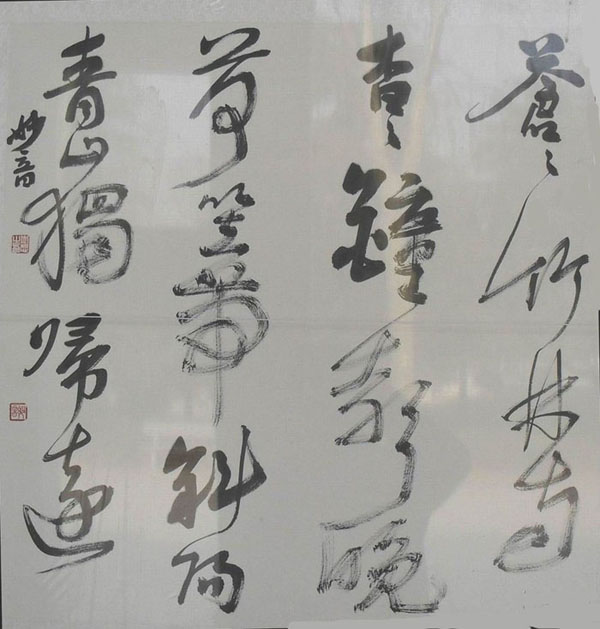 蒼々竹林寺
杳々鐘聲晚
荷笠帶斜陽
青山獨歸遠
妙音